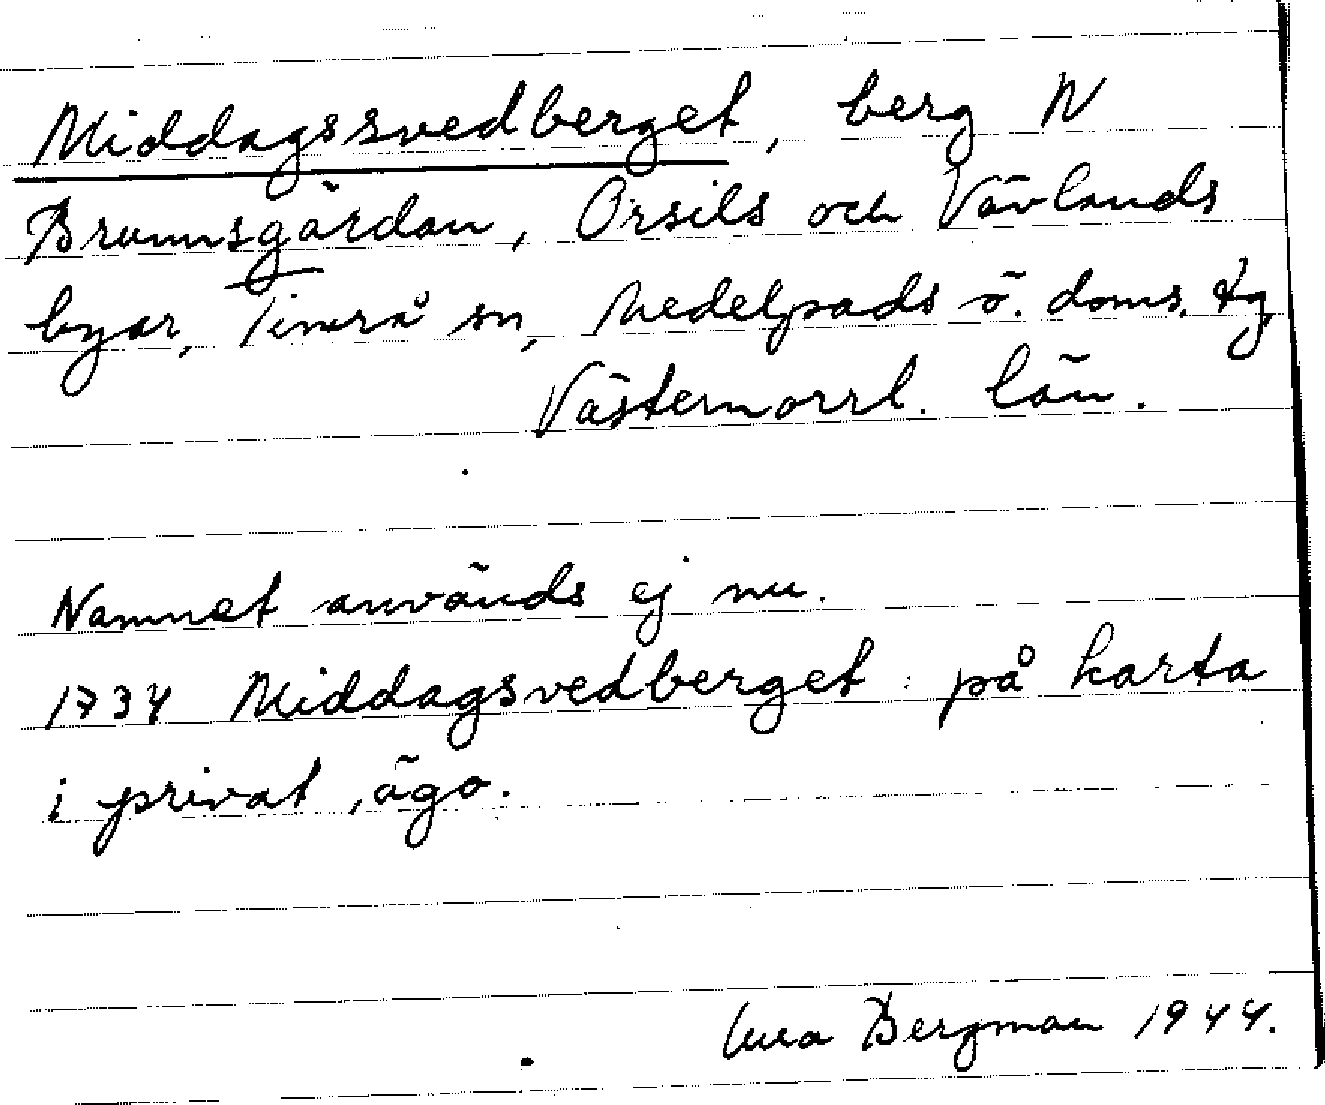 Middagssvedberget, berg N
Brunnsgärdan, Orsils och Vävlands
byar, Timrå sn, Medelpads ö. doms. tg,
Västernorrl. län.
Namnet används ej nu.
1734 Middagsvedberget : på karta
i privat ägo.
Bergman 1944.